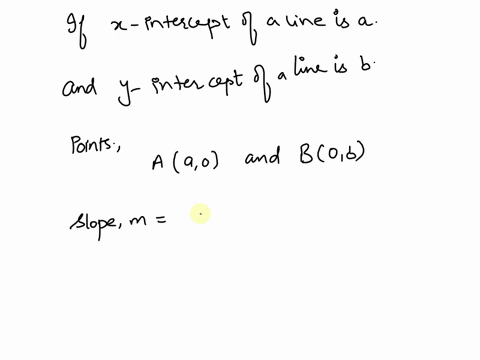 If x-intercept of a line is a.
and y-intercept of a line is b.
Points, A(a,0) and B(0,b)
slope, m =